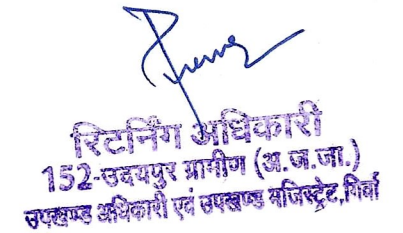 रिटर्निंग अधिकारी
152-उदयपुर ग्रामीण (अ.ज.जा.)
उपखण्ड अधिकारी एवं उपखण्ड मजिस्ट्रेट,गिर्वा